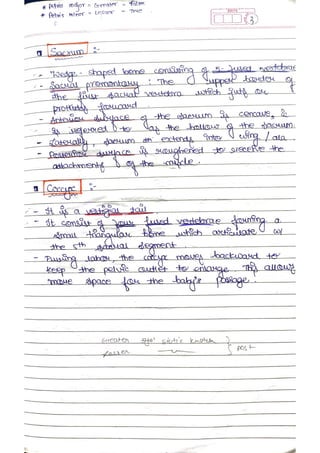 * Pelvis major - Greater - False
* Pelvis minor - Lesser - True
3
Sacrum :-
- Wedge-shaped bone consisting of 5 fused vertebrae
- Sacral promontary : The upper border of
the first sacral vertebra which juts or
protrudes forward.
- Anterior surface of the sacrum is concave, &
is referred to as the hollow of the sacrum
- Laterally, sacrum extends into wing / ala
- Posterior surface is roughened to receive the
attachments of the muscle.
Coccyx :-
- It is a vestigial tail
- It consist of four fused vertebrae forming a
small triangular bone which articulate w/
the 5th sacral segment.
- During labor, the coccyx moves backward to
keep the pelvic outlet to enlarge. This allows
more space for the baby's passage.
Greater sciatic notch
Lesser
post